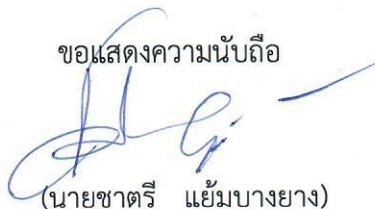 ขอแสดงความนับถือ
(นายชาตรี แย้มบางยาง)